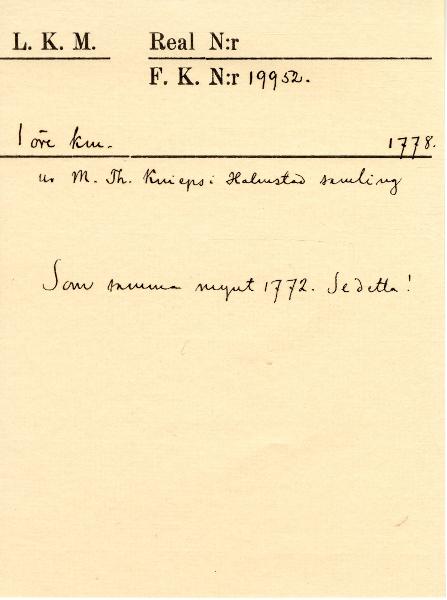 L. K. M. Real N:r
F. K. N:r 19952.
1 öre km. 1778.
ur M. Th. Knieps i Halmstad samling
Som samma mynt 1772. Se detta!